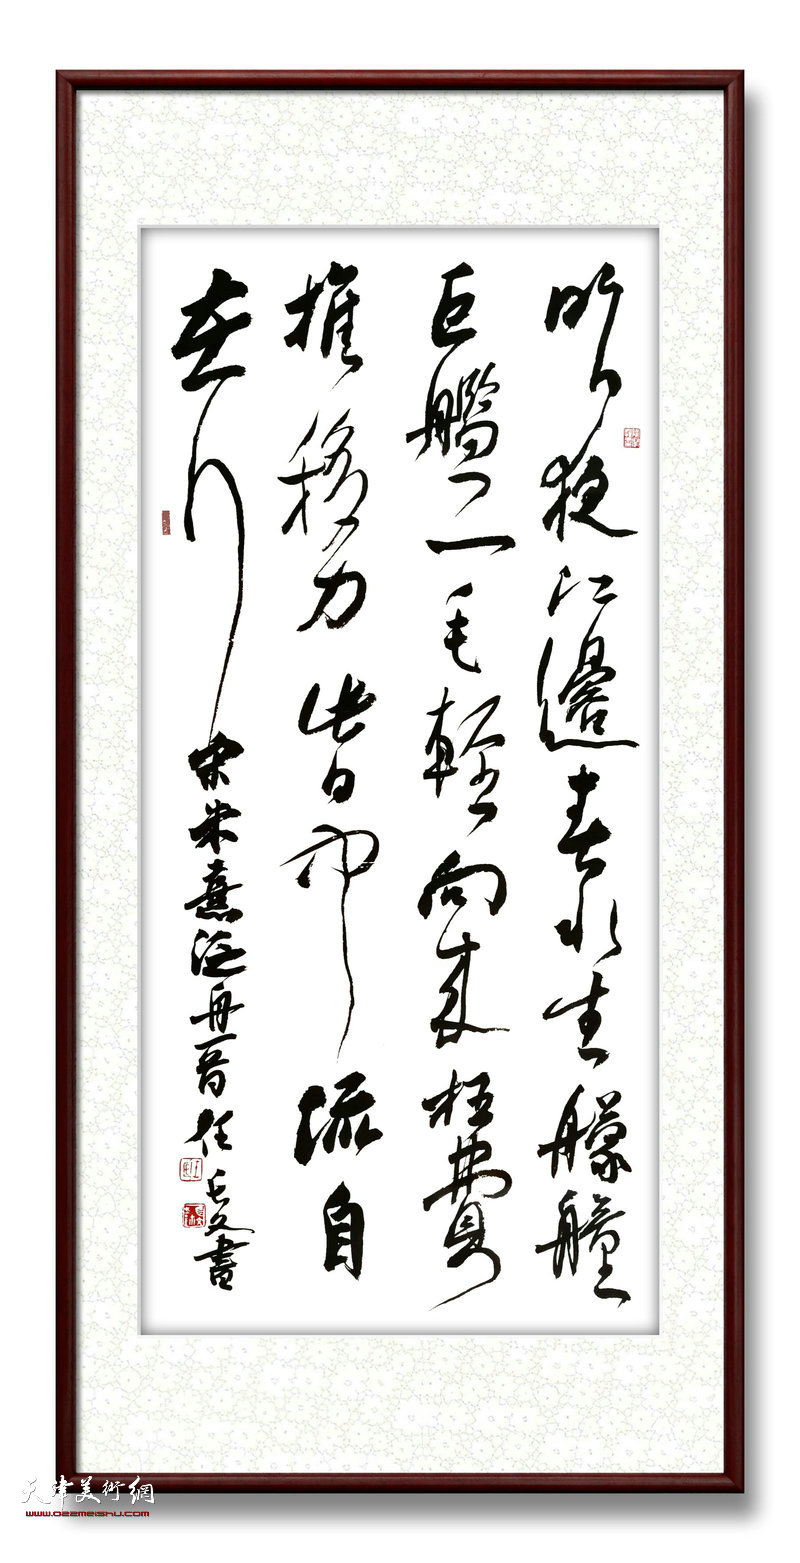 昨夜江邊春水生艨艟
巨艦一毛輕向來枉費
推移力此日中流自
在行
宋朱熹泛舟一首任長文書
天津美術網
www.022meishu.com